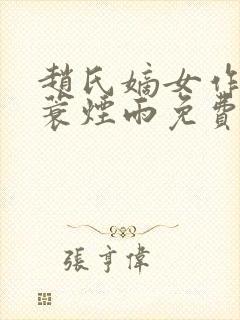 趙氏嫡女作
蓑煙雨免費
張亨偉